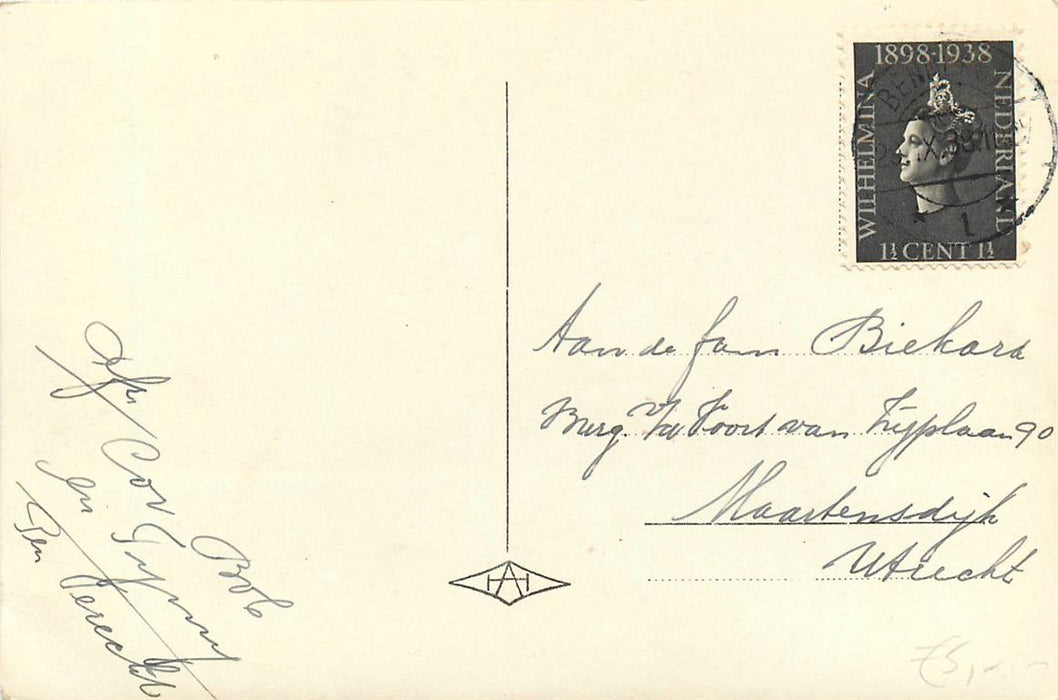 1898-1938
WILHELMINA
NEDERLAND
1½ CENT 1½
Aan de fam Biekard
Burg. Vd Voort van Zijplaan 90
Maartensdijk
Utrecht
Afz. Cor
en Bob
HA